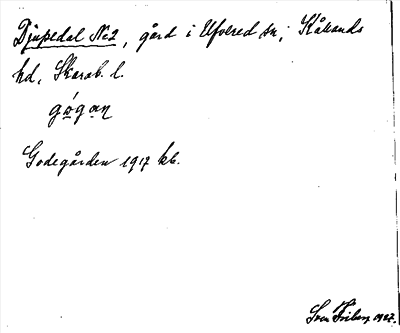 Djupedal No 2, gård i Ufvered sn; Kåkinds
hd, Skarab. l.
gógan
Godegården 1917 kb.
Sven Friberg 1927.